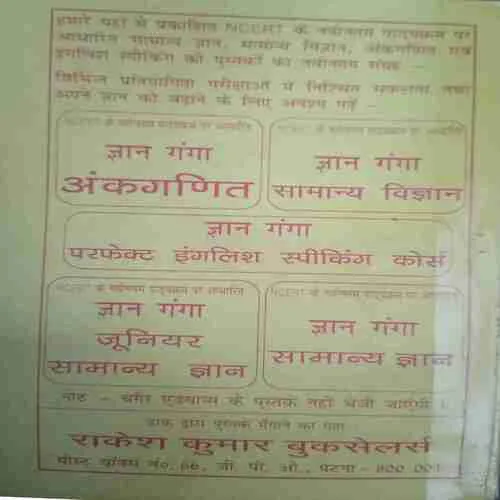 हमारे यहाँ से प्रकाशित NCERT के नवीनतम पाठ्यक्रम पर
आधारित सामान्य ज्ञान, सामान्य विज्ञान, अंकगणित एवं
इंगलिश स्पीकिंग की पुस्तकों का नवीनतम संग्रह -
विभिन्न प्रतियोगिता परीक्षाओं में निश्चित सफलता तथा
अपने ज्ञान को बढ़ाने के लिए अवश्य पढ़ें -
NCERT के नवीनतम पाठ्यक्रम पर आधारित
ज्ञान गंगा
अंकगणित
NCERT के नवीनतम पाठ्यक्रम पर आधारित
ज्ञान गंगा
सामान्य विज्ञान
ज्ञान गंगा
परफेक्ट इंगलिश स्पीकिंग कोर्स
NCERT के नवीनतम पाठ्यक्रम पर आधारित
ज्ञान गंगा
जूनियर
सामान्य ज्ञान
NCERT के नवीनतम पाठ्यक्रम पर आधारित
ज्ञान गंगा
सामान्य ज्ञान
नोट - बगैर एडवान्स के पुस्तकें नहीं भेजी जाएंगी ।
डाक द्वारा पुस्तक मँगाने का पता
राकेश कुमार बुकसेलर्स
पोस्ट बॉक्स नं०. 66, जी. पी. ओ., पटना - 800 001